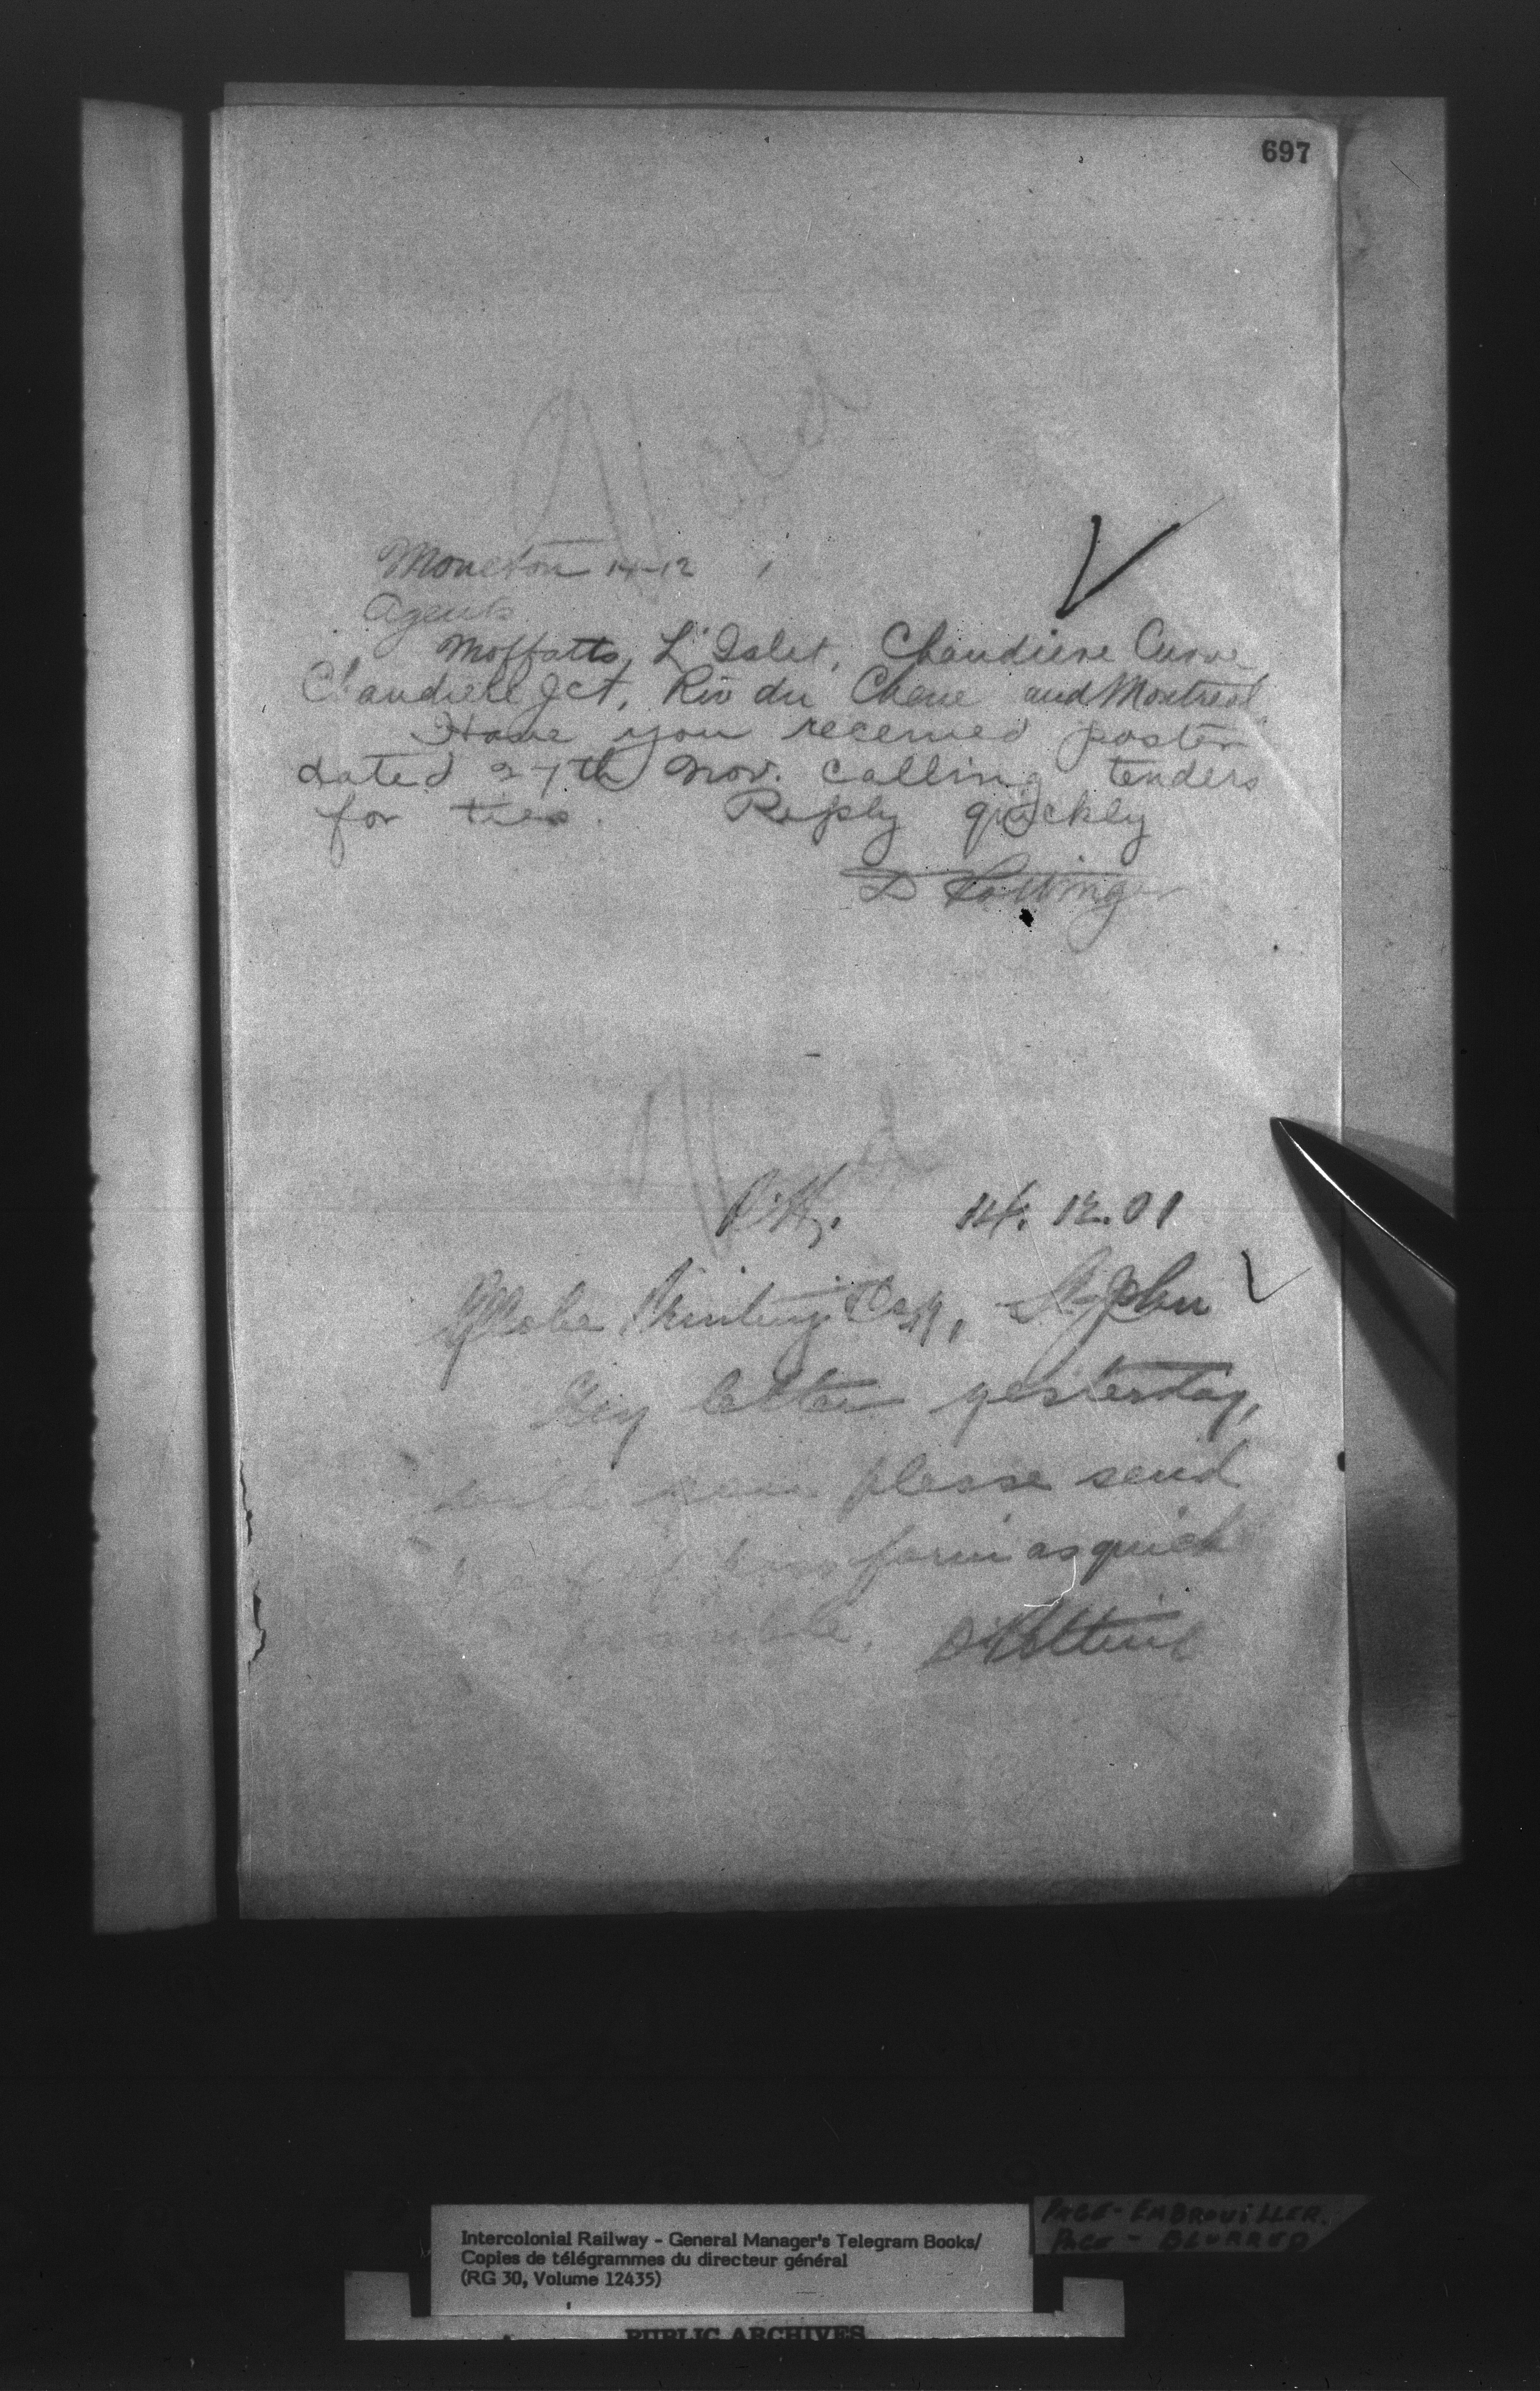 697
Moncton 14-12
Agents
Moffatts, L'Islet, Chaudiere Curve
Chaudiere Jct, Riv du Chene and Montreal
Have you received poster
dated 27th Nov. calling tenders
for ties. Reply quickly
D Pottinger
14. 12. 01
Globe Printing Coy, St John
My letter yesterday,
will you please send
form as quick
possible. D Pottinger
Intercolonial Railway - General Manager's Telegram Books/
Copies de télégrammes du directeur général
(RG 30, Volume 12435)
PAGE - EMBROUILLER.
PAGE - BLURRED
PUBLIC ARCHIVES